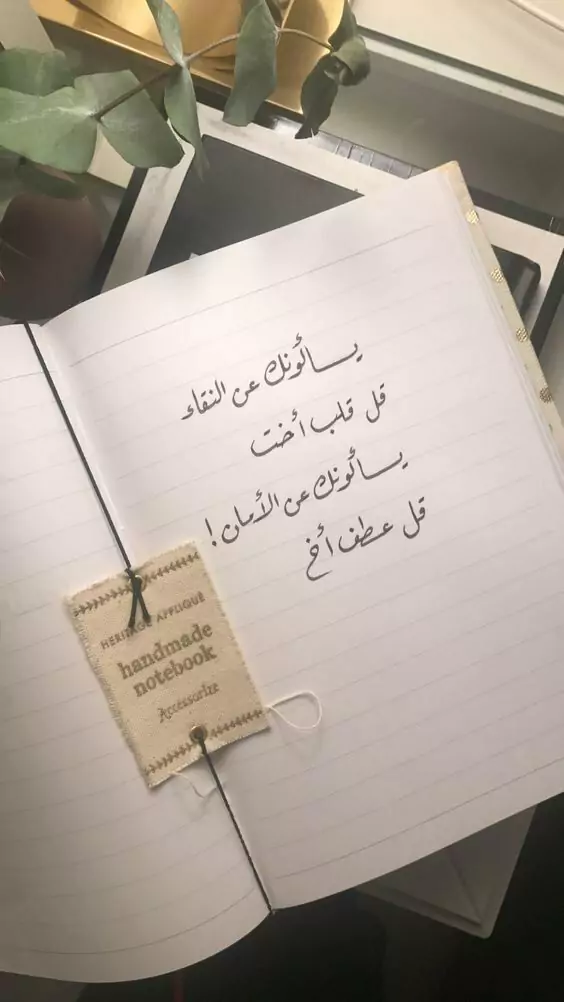 يسألونك عن النقاء
قل قلب أخت
يسألونك عن الأمان !
قل عطف أخ
HERITAGE APPLIQUE
handmade
notebook
Accessorize